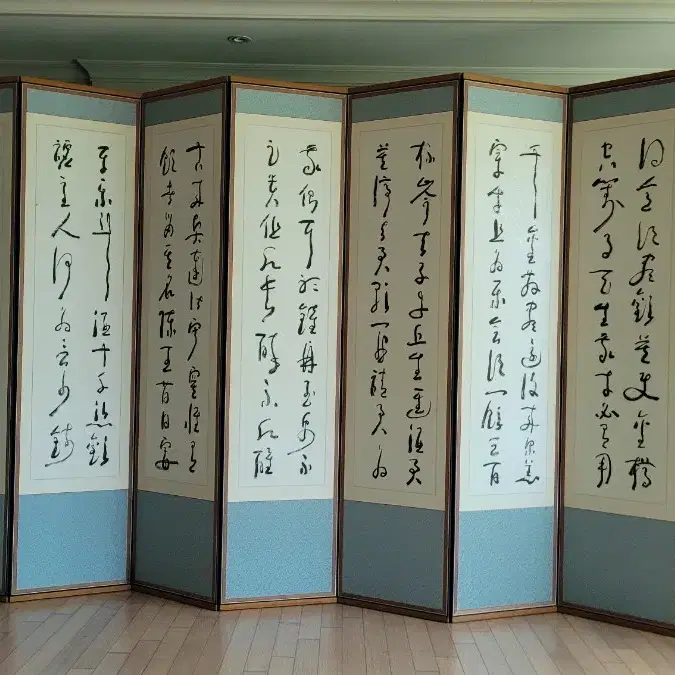 得意須盡歡莫使金樽
空對月天生我材必有用
千金散盡還復來烹羔
宰牛且爲樂會須一飲三百
杯岑夫子丹丘生進酒君
莫停與君歌一曲請君爲
我側耳聽鐘鼎玉帛不
足貴但願長醉不願醒
古來賢達皆寂寞惟有
飲者留其名陳王昔日宴
平樂斗酒十千恣歡
謔主人何爲言少錢